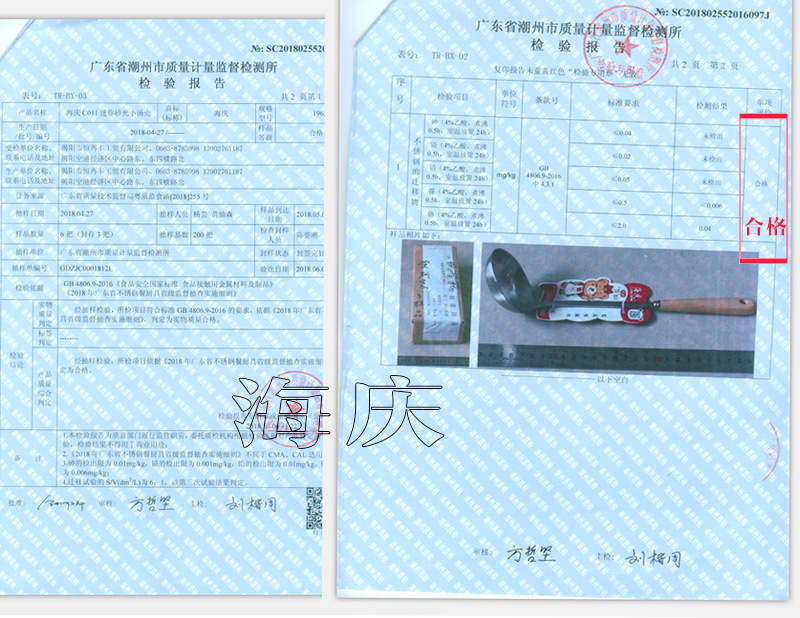 №: SC20180255201
广东省潮州市质量计量监督检测所
检 验 报 告
表号: TR-BX-03
共 2 页 第 1
产品名称 海庆 C011 迷你砂光小汤壳 商标(标称) 海庆 规格型号 196
生产日期/批号/编号 2018-04-27 /------ 样品等级 合格
受检单位名称、联系电话及地址 揭阳市恒再丰工贸有限公司、0663-8785998 13902761187
揭阳空港经济区中心路东、东四横路北
生产单位名称、联系电话及地址 揭阳市恒再丰工贸有限公司、0663-8785998 13902761187
揭阳空港经济区中心路东、东四横路北
任务来源 广东省质量技术监督局粤质监食函[2018]255 号
抽样日期 2018.04.27 抽样人员 杨芸 黄灿森 样品到达日期 2018.05.0
样品数量 6 把(封存 3 把) 抽样基数 200 把 检查封样人员
抽样单位 广东省潮州市质量计量监督检测所 封样状态
抽样单编号 GDZJC0001812L 验讫日期 2018.06.0
检验依据 GB 4806.9-2016《食品安全国家标准 食品接触用金属材料及制品》
《2018 年广东省不锈钢餐厨具省级监督抽查实施细则》
检验结论
实物质量判定 经抽样检验,所检项目符合标准 GB 4806.9-2016 的要求,依据《2018 年广东省
具省级监督抽查实施细则》,判定为实物质量合格。
标签判定 --------
产品质量综合判定 经抽样检验,所检项目依据《2018 年广东省不锈钢餐厨具省级监督抽查实施细
定为合格。
备 注
1.本检验报告为质监部门履行监督职责,委托质检机构根据
验,检验结果不得用于商业用途;
2.《2018 年广东省不锈钢餐厨具省级监督抽查实施细则》不属于 CMA、CAL
3.砷的检出限为 0.01mg/kg,镉的检出限为 0.001mg/kg,铅的检出限为 0.01mg/kg,
为 0.006mg/kg;
4.迁移试验的 S/V(dm²/L)为 6:1,以第三次试验结果判定。
批准: 审核: 方哲坚 主检: 刘梅周
№: SC201802552016097J
广东省潮州市质量计量监督检测所
检 验 报 告
表号: TR-BX-02
复印报告未重盖红色“检验专用章”无效
共 2 页 第 2 页
序号 检验项目 单位符号 条款号 标准要求 检测结果 单项评价
1 不锈钢的迁移物 mg/kg GB 4806.9-2016 中 4.3.1 合格
砷(4%乙酸,煮沸 0.5h,室温放置 24h) ≤0.04 未检出
镉(4%乙酸,煮沸 0.5h,室温放置 24h) ≤0.02 未检出
铅(4%乙酸,煮沸 0.5h,室温放置 24h) ≤0.05 未检出
镍(4%乙酸,煮沸 0.5h,室温放置 24h) ≤0.5 <0.006
铬(4%乙酸,煮沸 0.5h,室温放置 24h) ≤2.0 0.04
合格
样品相片如下:
以下空白
海庆
审核: 方哲坚 主检: 刘梅周